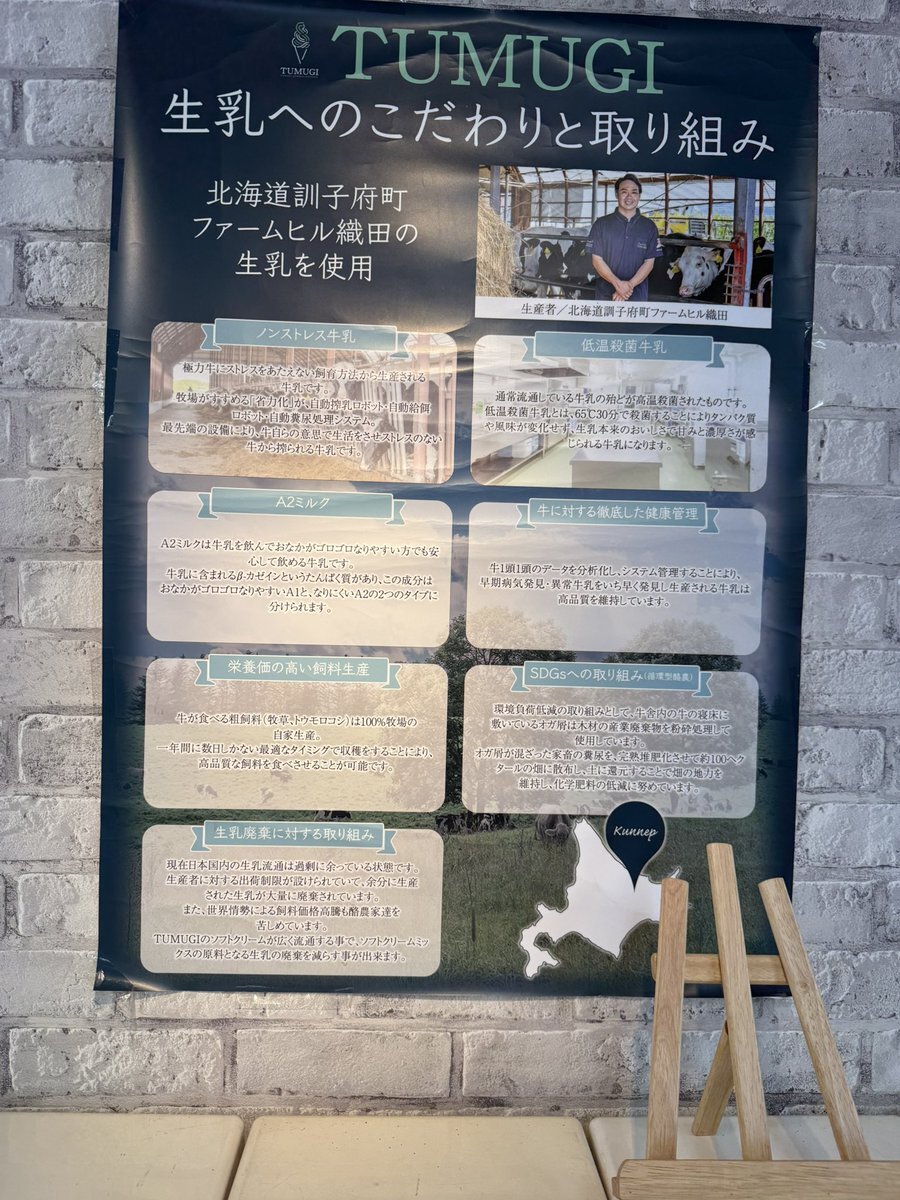 TUMUGI
TUMUGI
生乳へのこだわりと取り組み
北海道訓子府町
ファームヒル織田の
生乳を使用
生産者／北海道訓子府町ファームヒル織田
ノンストレス牛乳
極力牛にストレスをあたえない飼育方法から生産される
牛乳です。
牧場がすすめる『省力化』が、自動搾乳ロボット・自動給餌
ロボット・自動糞尿処理システム。
最先端の設備により、牛自らの意思で生活をさせストレスのない
牛から搾られる牛乳です。
低温殺菌牛乳
通常流通している牛乳の殆どが高温殺菌されたものです。
低温殺菌牛乳とは、65℃30分で殺菌することによりタンパク質
や風味が変化せず、生乳本来のおいしさで甘みと濃厚さが感
じられる牛乳になります。
A2ミルク
A2ミルクは牛乳を飲んでおなかがゴロゴロなりやすい方でも安
心して飲める牛乳です。
牛乳に含まれるβ-カゼインというたんぱく質があり、この成分は
おなかがゴロゴロなりやすいA1と、なりにくいA2の2つのタイプに
分けられます。
牛に対する徹底した健康管理
牛1頭1頭のデータを分析化し、システム管理することにより、
早期病気発見・異常牛乳をいち早く発見し生産される牛乳は
高品質を維持しています。
栄養価の高い飼料生産
牛が食べる粗飼料（牧草、トウモロコシ）は100%牧場の
自家生産。
一年間に数日しかない最適なタイミングで収穫をすることにより、
高品質な飼料を食べさせることが可能です。
SDGsへの取り組み（循環型酪農）
環境負荷低減の取り組みとして、牛舎内の牛の寝床に
敷いているオガ屑は木材の産業廃棄物を粉砕処理して
使用しています。
オガ屑が混ざった家畜の糞尿を、完熟堆肥化させて約100ヘク
タールの畑に散布し、土に還元することで畑の地力を
維持し、化学肥料の低減に努めています。
生乳廃棄に対する取り組み
現在日本国内の生乳流通は過剰に余っている状態です。
生産者に対する出荷制限が設けられていて、余分に生産
された生乳が大量に廃棄されています。
また、世界情勢による飼料価格高騰も酪農家達を
苦しめています。
TUMUGIのソフトクリームが広く流通する事で、ソフトクリームミッ
クスの原料となる生乳の廃棄を減らす事が出来ます。
Kunnep